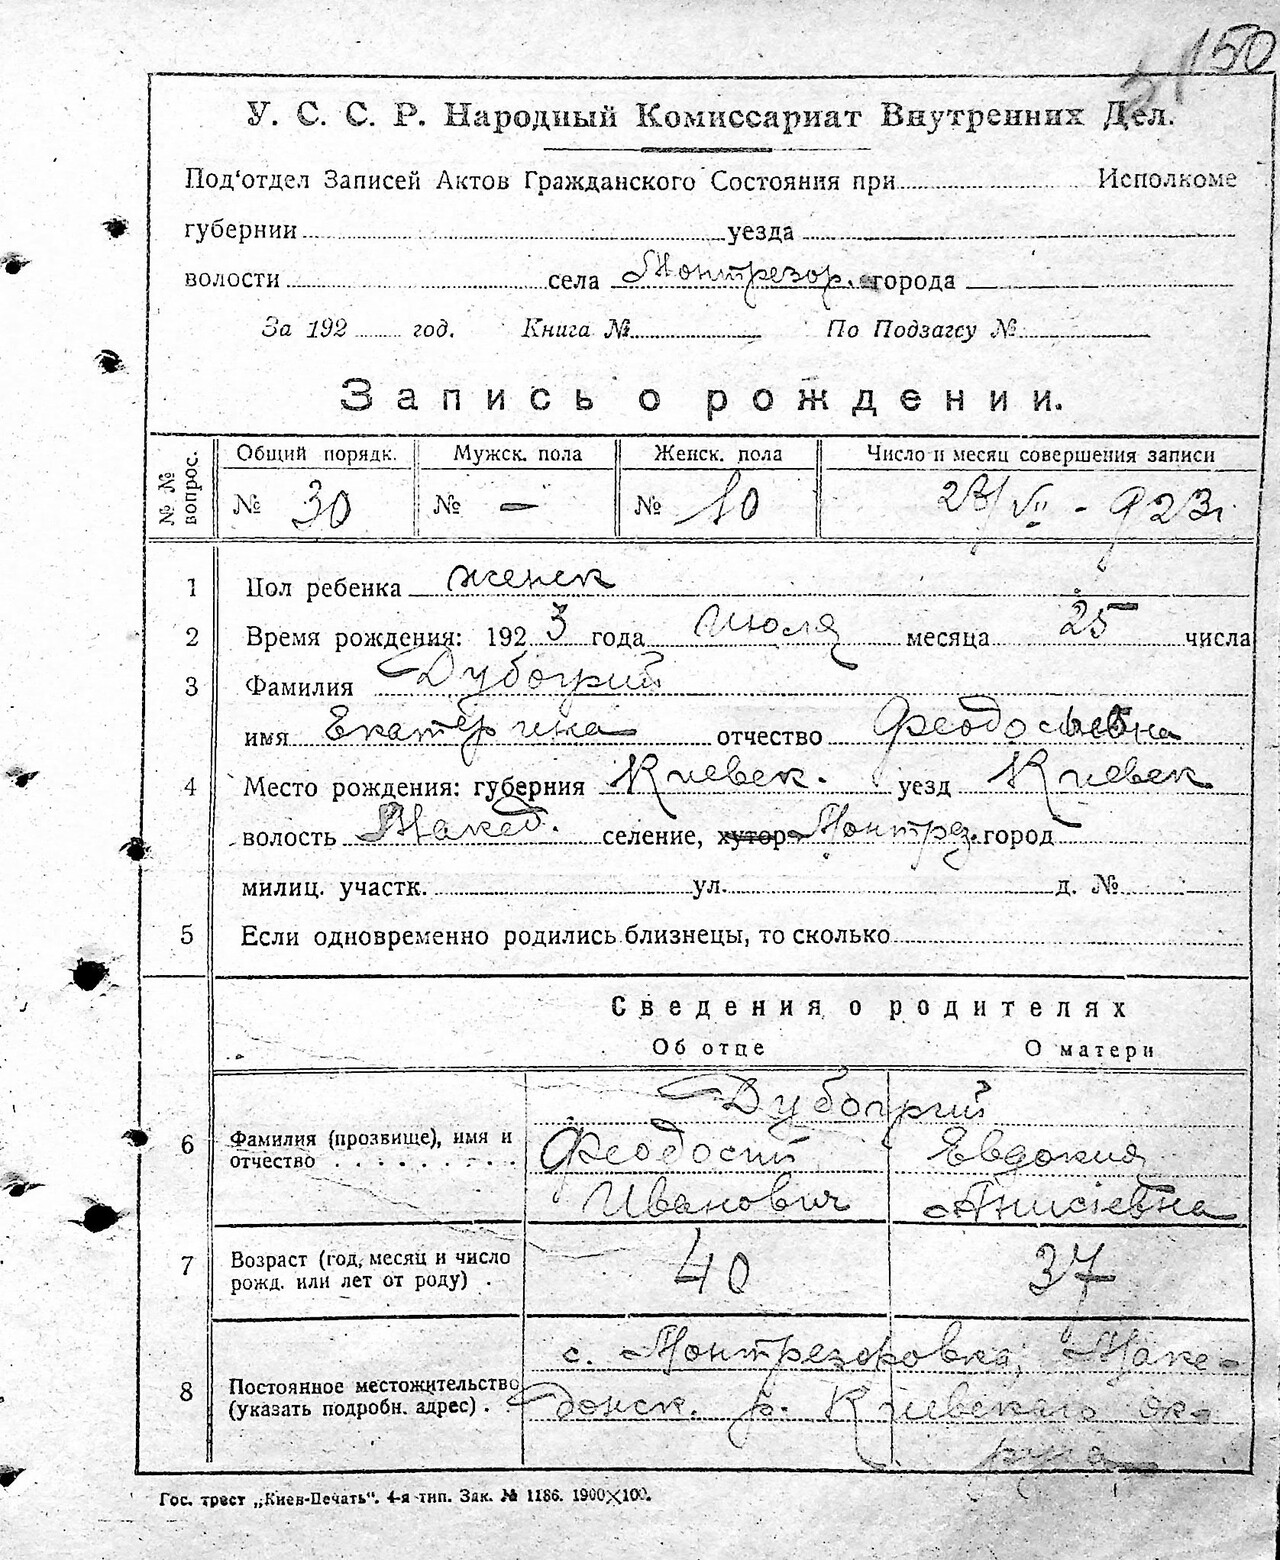 150
У. С. С. Р. Народный Комиссариат Внутренних Дел.
Под'отдел Записей Актов Гражданского Состояния при Исполкоме
губернии уезда
волости села Монтрезор. города
За 192 год. Книга № По Подзагсу №
Запись о рождении.
№ № вопрос. Общий порядк. Мужск. пола Женск. пола Число и месяц совершения записи
№ 30 № — № 10 23/VII - 923г
1 Пол ребенка женск
2 Время рождения: 1923 года Июля месяца 25 числа
3 Фамилия Дубогрий
имя Екатерина отчество Феодосьевна
4 Место рождения: губерния Киевск. уезд Киевск
волость Макед. селение, хутор Монтрез. город
милиц. участк. ул. д. №
5 Если одновременно родились близнецы, то сколько
Сведения о родителях
Об отце О матери
Дубогрий
6 Фамилия (прозвище), имя и Феодосий Евдокия
отчество Иванович Анисіевна
7 Возраст (год, месяц и число 40 37
рожд. или лет от роду) .
с. Монтрезоровка, Маке-
8 Постоянное местожительство донск. р. Киевского ок-
(указать подробн. адрес) . руга
Гос. трест „Киев-Печать“. 4-я тип. Зак. № 1186. 1900×100.